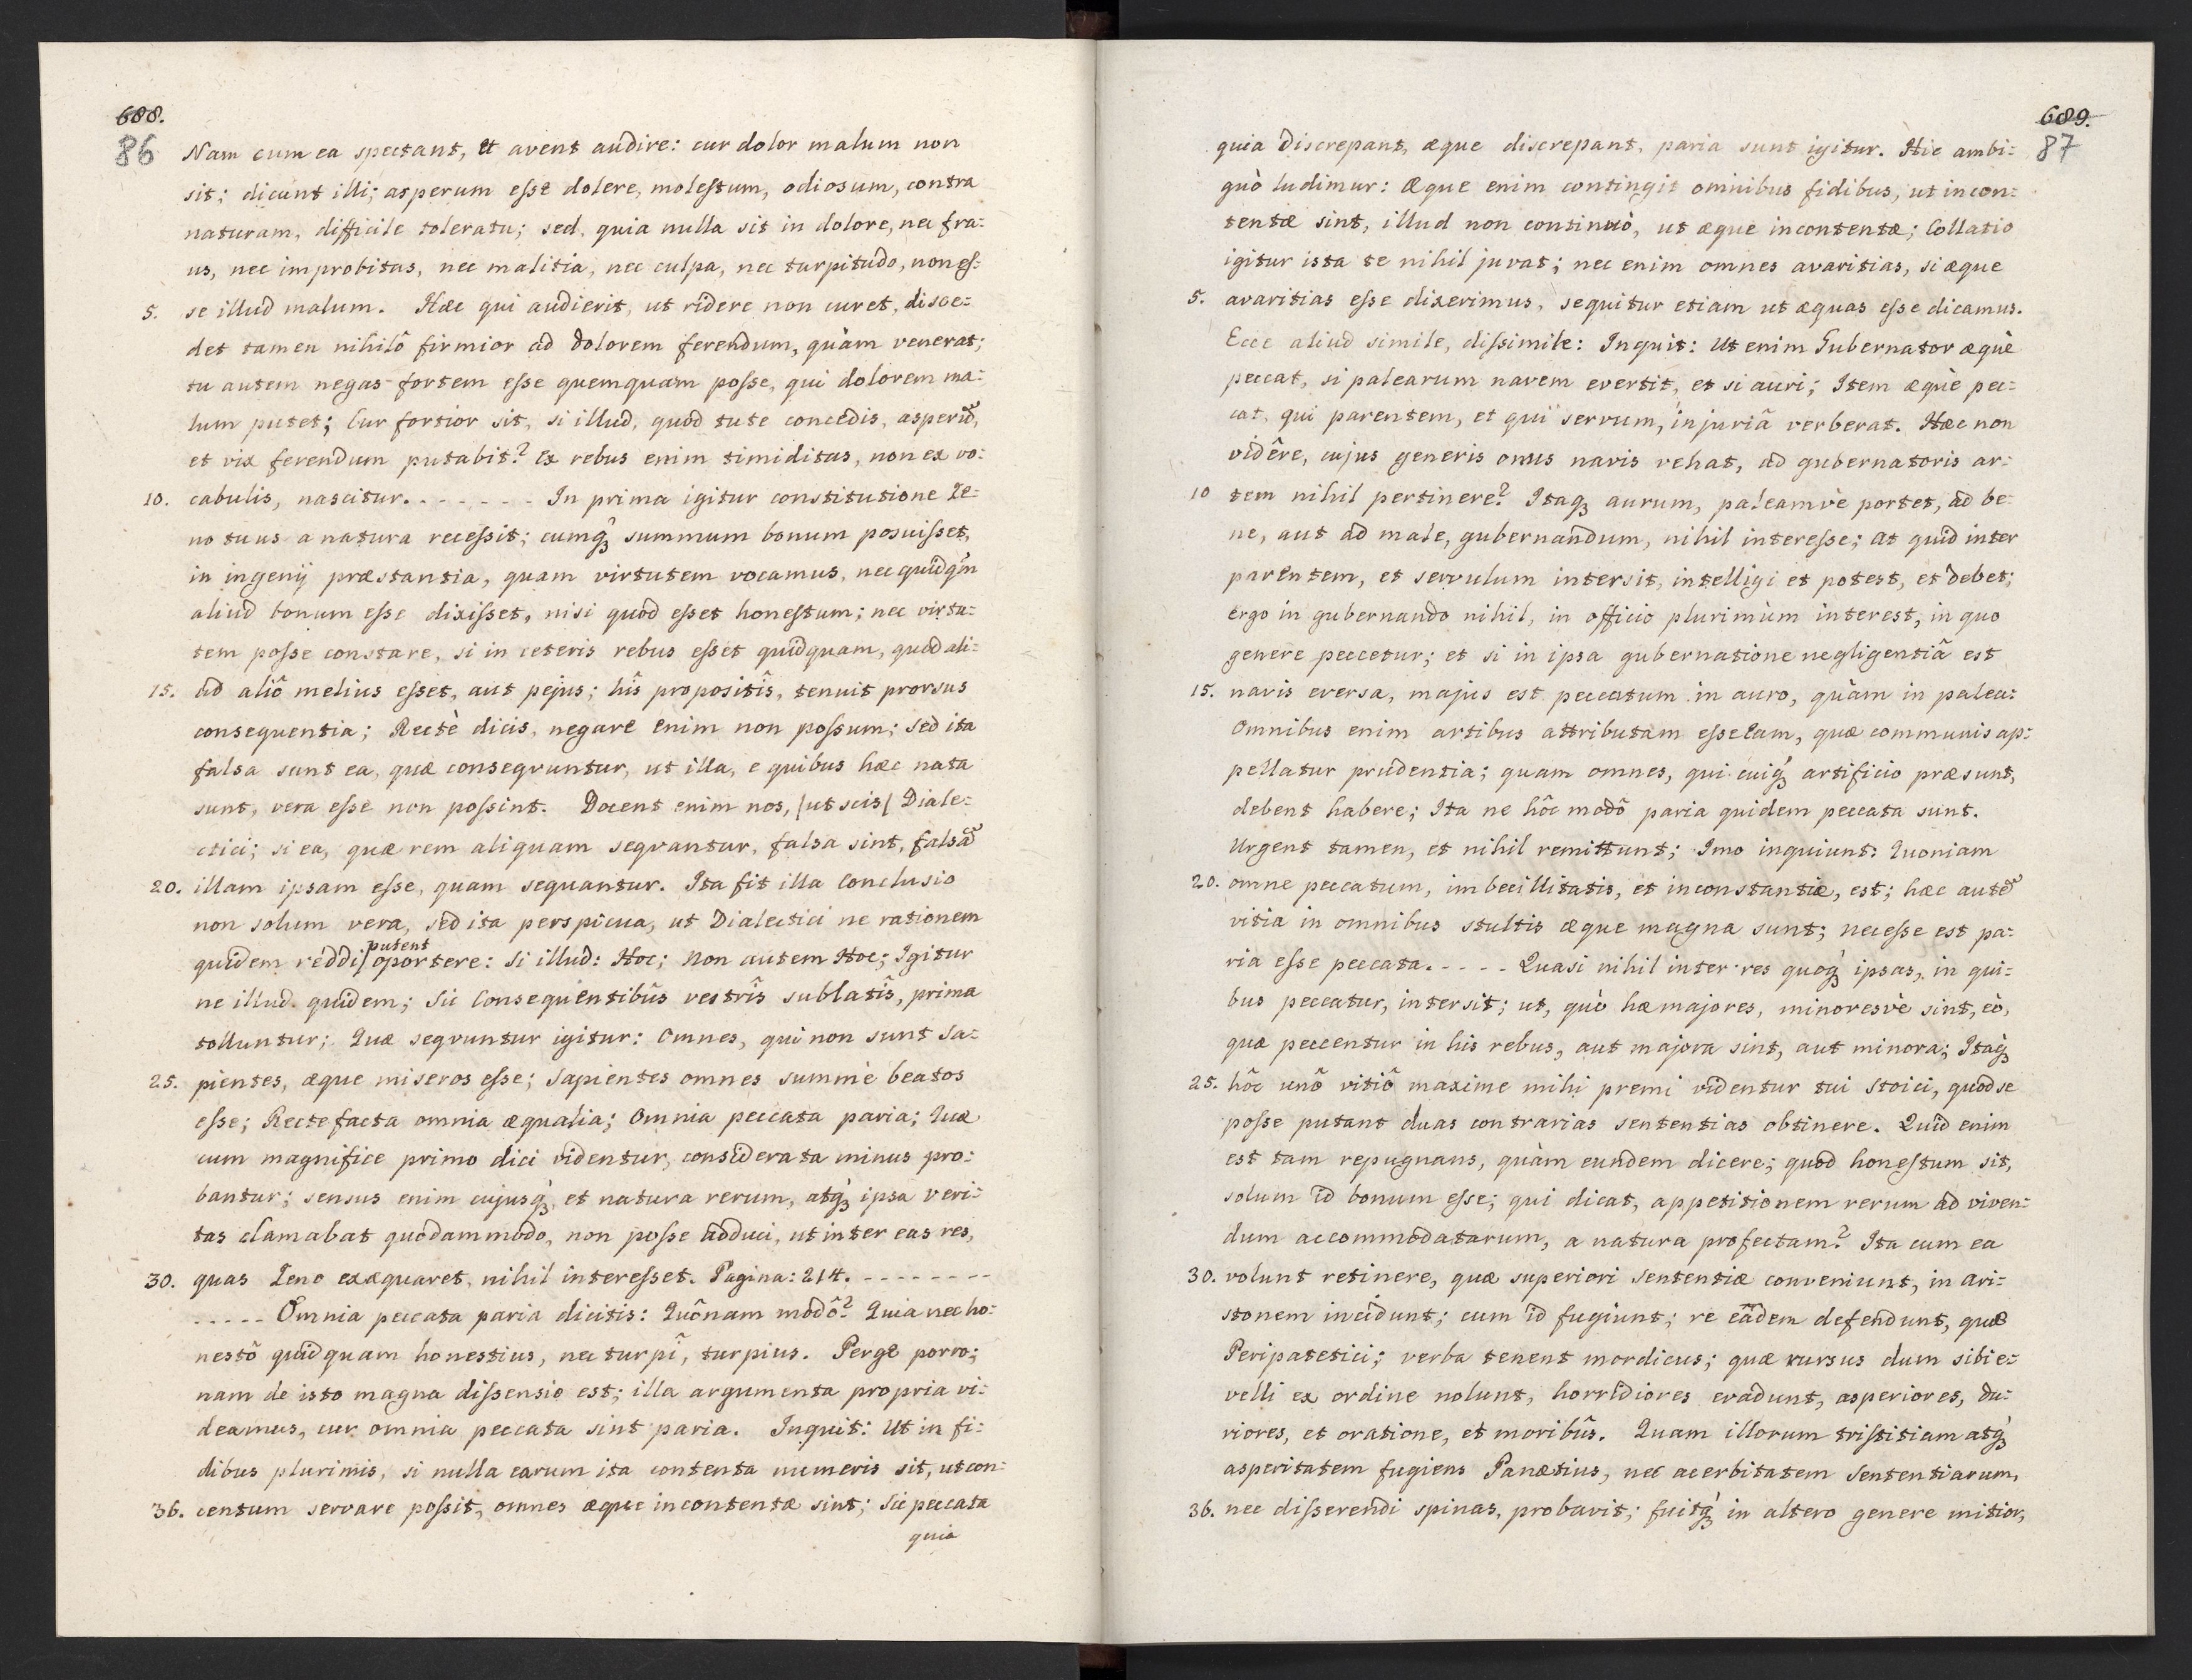 688.
86
Nam cum ea spectant, et avent audire: cur dolor malum non
sit; dicunt illi; asperum esse dolere, molestum, odiosum, contra
naturam, difficile toleratu; sed, quia nulla sit in dolore, nec fra=
us, nec improbitas, nec malitia, nec culpa, nec turpitudo, non es=
5. se illud malum. Hæc qui audierit, ut ridere non curet, disce=
det tamen nihilô firmior ad dolorem ferendum, quàm venerat;
tu autem negas fortem esse quemquam posse, qui dolorem ma=
lum putet; Cur fortior sit, si illud, quod tute concedis, asperũ,
et vix ferendum putabit? Ex rebus enim timiditas, non ex vo=
10. cabulis, nascitur. - - - - - - - In prima igitur constitutione Ze=
no tuus a natura recessit; cumq́ʒ summum bonum posuisset,
in ingenij præstantia, quam virtutem vocamus, nec quidq̃m
aliud bonum esse dixisset, nisi quod esset honestum; nec virtu=
tem posse constare, si in ceteris rebus esset quidquam, quod ali=
15. ud aliô melius esset, aut pejus; hîs propositîs, tenuit prorsus
consequentia; Rectè dicis, negare enim non possum; sed ita
falsa sunt ea, quæ conseqvuntur, ut illa, e quibus hæc nata
sunt, vera esse non possint. Docent enim nos, /ut scis/ Diale=
ctici; si ea, quæ rem aliquam seqvantur, falsa sint, falsã
20. illam ipsam esse, quam sequantur. Ita fit illa Conclusio
non solum vera, sed ita perspicua, ut Dialectici ne rationem
putent
quidem reddi/oportere: Si illud: Hoc; Non autem Hoc; Igitur
ne illud quidem; Sic Consequentibûs vestrîs sublatîs, prima
tolluntur; Quæ seqvuntur igitur: Omnes, qui non sunt Sa=
25. pientes, æque miseros esse; Sapientes omnes summè beatos
esse; Recte facta omnia æqualia; Omnia peccata paria; Quæ
cum magnifice primo dici videntur, considerata minus pro=
bantur; sensus enim cujusq́ʒ, et natura rerum, atq́ʒ ipsa veri=
tas clamabat quodammodo, non posse adduci, ut inter eas res,
30. quas Zeno exæquaret, nihil interesset. Pagina: 214. - - - - - - - -
- - - - - Omnia peccata paria dicitis: Quônam modô? Quia nec ho=
nestô quidquam honestius, nec turpî, turpius. Perge porro;
nam de isto magna dissensio est; illa argumenta propria vi=
deamus, cur omnia peccata sint paria. Inquit: Ut in fi=
dibus plurimis, si nulla earum ita contenta numeris sit, ut con=
36. centum servare possit, omnes æque incontentæ sint; Sic peccata
quia
689.
87
quia discrepant, æque discrepant, paria sunt igitur. Hic ambi=
guò ludimur: Æque enim contingit omnibus fidibus, ut incon=
tentæ sint, illud non continuò, ut æque incontentæ; Collatio
igitur ista te nihil juvat; nec enim omnes avaritias, si æque
5. avaritias esse dixerimus, sequitur etiam ut æquas esse dicamus.
Ecce aliud simile, dissimile: Inquit: Ut enim Gubernator æquè
peccat, si palearum navem evertit, et si auri; Item æquè pec=
cat, qui parentem, et qui servum, injuriâ verberat. Hæc non
vidêre, cujus generis onus navis vehat, ad gubernatoris ar=
10 tem nihil pertinere? Itaqʒ aurum, paleamvè portet, ad be=
ne, aut ad male, gubernandum, nihil interesse; At quid inter
parentem, et servulum intersit, intelligi et potest, et debet;
ergo in gubernando nihil, in officio plurimùm interest, in quo
genere peccetur; et si in ipsa gubernatione negligentiâ est
15. navis eversa, majus est peccatum in auro, quàm in palea:
Omnibus enim artibus attributam esse Eam, quæ communis ap=
pellatur prudentia; quam omnes, qui cuiq́ʒ artificio præsunt,
debent habere; Ita ne hôc modô paria quidem peccata sunt.
Urgent tamen, et nihil remittunt; Imo inquiunt: Quoniam
20. omne peccatum, imbecillitatis, et inconstantiæ, est; hæc autẽ
vitia in omnibus stultis æque magna sunt; necesse est pa=
ria esse peccata. - - - - Quasi nihil inter res quoq́ʒ ipsas, in qui=
bus peccatur, intersit; ut, quò hæ majores, minoresvè sint, eò,
quæ peccentur in his rebus, aut majora sint, aut minora; Itaq́ʒ
25. hôc unô vitiô maxime mihi premi videntur tui Stoici, quod se
posse putant duas contrarias sententias obtinere. Quid enim
est tam repugnans, quàm eundem dicere; quod honestum sit,
solum id bonum esse; qui dicat, appetitionem rerum ad viven=
dum accommodatarum, a natura profectam? Ita cum ea
30. volunt retinere, quæ superiori Sententiæ conveniunt, in Ari=
stonem incidunt; cum id fugiunt; re eâdem defendunt, quæ
Peripatetici; verba tenent mordicus; quæ rursus dum sibi e=
velli ex ordine nolunt, horridiores evadunt, asperiores, du=
riores, et oratione, et moribûs. Quam illorum tristitiam atq́ʒ
asperitatem fugiens Panætius, nec acerbitatem Sententiarum,
36. nec disserendi spinas, probavit; fuitq́ʒ in altero genere mitior,